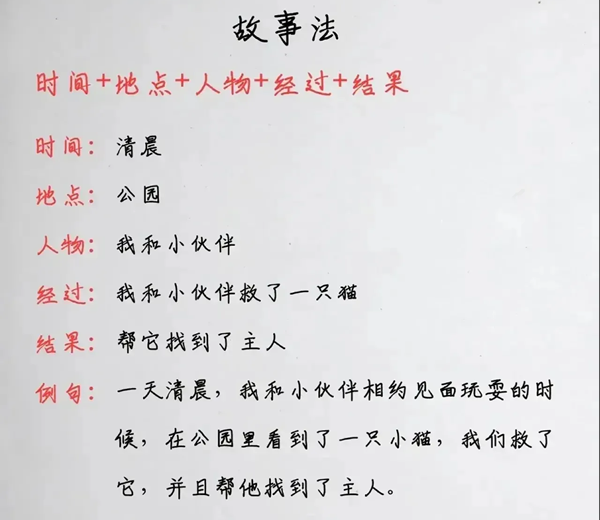 故事法
时间+地点+人物+经过+结果
时间：清晨
地点：公园
人物：我和小伙伴
经过：我和小伙伴救了一只猫
结果：帮它找到了主人
例句：一天清晨，我和小伙伴相约见面玩耍的时
候，在公园里看到了一只小猫，我们救了
它，并且帮他找到了主人。